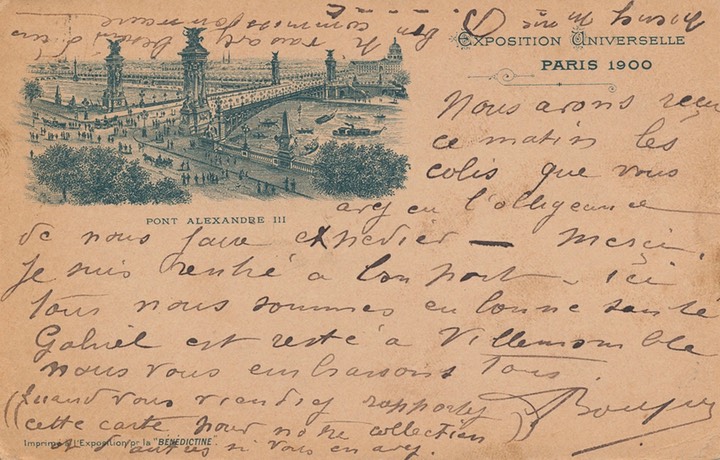 EXPOSITION UNIVERSELLE
PARIS 1900
PONT ALEXANDRE III
Nous avons reçu
ce matin les
colis que vous
avez eu l'obligeance
de nous faire expédier — Merci.
Je suis rentré à bon port — ici
tous nous sommes en bonne santé
Gabriel est resté à Villemomble
nous vous embrassons tous.
(Quand vous viendrez rapportez
cette carte pour notre collection
et d'autres si vous en avez.
Imprimé à l'Exposition pr la "BÉNÉDICTINE"